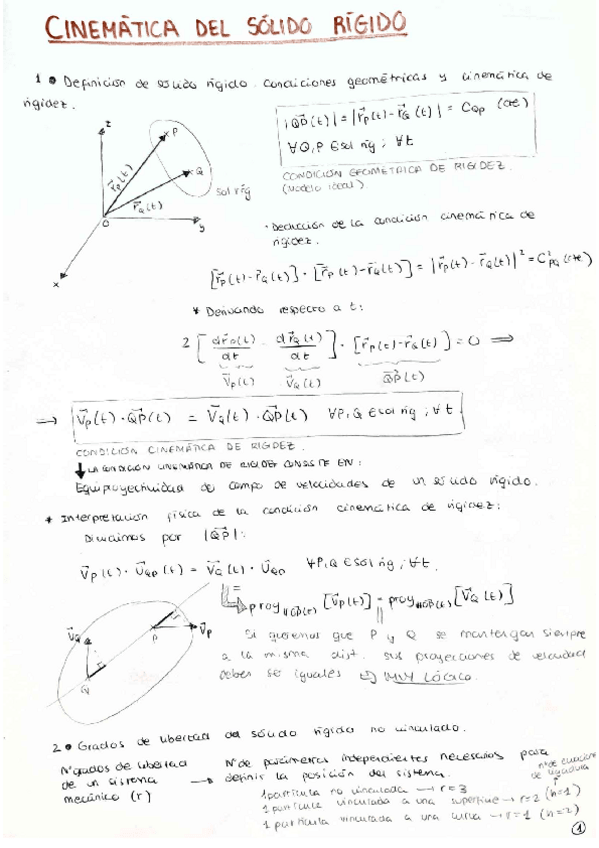 CINEMÁTICA DEL SÓLIDO RÍGIDO
1 • Definición de sólido rígido. Condiciones geométricas y cinemática de
rigidez.
|Q⃗P(t)| = |r⃗P(t) - r⃗Q(t)| = CQP (cte)
∀Q,P ∈ sol ríg ; ∀t
CONDICIÓN GEOMÉTRICA DE RIGIDEZ.
(modelo ideal)
z
P
Q
r⃗P(t)
r⃗Q(t)
sol ríg
O
y
x
· Deducción de la condición cinemática de
rigidez.
[r⃗P(t) - r⃗Q(t)] · [r⃗P(t) - r⃗Q(t)] = |r⃗P(t) - r⃗Q(t)|² = C²PQ (cte)
* Derivando respecto a t:
2 [dr⃗P(t)/dt - dr⃗Q(t)/dt] · [r⃗P(t) - r⃗Q(t)] = 0 ⟹
V⃗P(t) V⃗Q(t) Q⃗P(t)
⟹ V⃗P(t) · Q⃗P(t) = V⃗Q(t) · Q⃗P(t) ∀P,Q ∈ sol ríg ; ∀t.
CONDICIÓN CINEMÁTICA DE RIGIDEZ.
↓ LA CONDICIÓN CINEMÁTICA DE RIGIDEZ CONSISTE EN:
Equiproyectividad de campo de velocidades de un sólido rígido.
* Interpretación física de la condición cinemática de rigidez:
Dividimos por |Q⃗P|:
V⃗P(t) · U⃗QP(t) = V⃗Q(t) · U⃗QP ∀P,Q ∈ sol ríg ; ∀t.
proy∥Q⃗P(t) [V⃗P(t)] = proy∥Q⃗P(t) [V⃗Q(t)]
V⃗Q
P
V⃗P
Q
Si queremos que P y Q se mantengan siempre
a la misma dist. sus proyecciones de velocidad
deben ser iguales MUY LÓGICO.
2 • Grados de libertad del sólido rígido no vinculado.
Nº grados de libertad
de un sistema
mecánico (r)
→ Nº de parámetros independientes necesarios para
definir la posición del sistema.
nº de ecuaciones
de ligadura
1 partícula no vinculada → r=3
1 partícula vinculada a una superficie → r=2 (h=1)
1 partícula vinculada a una curva → r=1 (h=2)
1